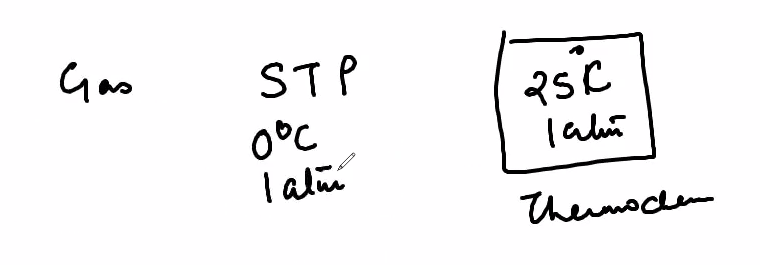 Gas
STP
0°C
1 atm
25°C
1 atm
Thermochem